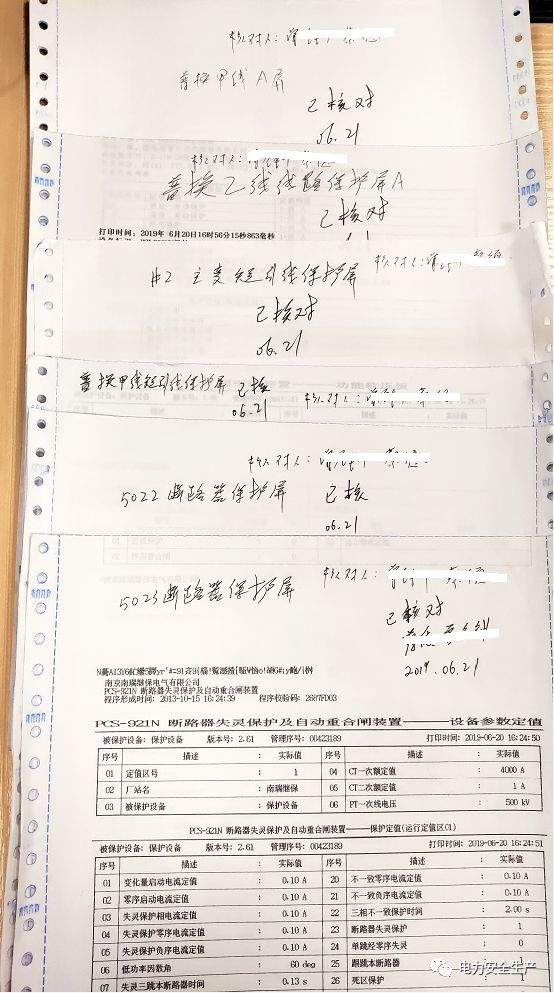 核对人:
普换甲线 A屏
已核对
06.21
核对人:
普换乙线线路保护屏A
已核对
打印时间: 2019年 6月20日16时56分15秒863毫秒
核对人:
#2 主变短引线保护屏
已核对
06.21
普换甲线短引线保护屏 已核
06.21
核对人:
核对人:
5022断路器保护屏
已核
06.21
核对人:
5023断路器保护屏
已核对
2019.06.21
南京南瑞继保电气有限公司
PCS-921N 断路器失灵保护及自动重合闸装置
程序形成时间: 2013-10-15 16:24:39 程序校验码: 2687FD03
PCS-921N 断路器失灵保护及自动重合闸装置——设备参数定值
被保护设备: 保护设备 版本号: 2.61 管理序号: 00423189 打印时间: 2019-06-20 16:24:50
序号 描述 实际值 序号 描述 实际值
01 定值区号 : 1 04 CT一次额定值 : 4000 A
02 厂站名 : 南瑞继保 05 CT二次额定值 : 1 A
03 被保护设备 : 保护设备 06 PT一次线电压 : 500 kV
PCS-921N 断路器失灵保护及自动重合闸装置——保护定值(运行定值区01)
被保护设备: 保护设备 版本号: 2.61 管理序号: 00423189 打印时间: 2019-06-20 16:24:51
序号 描述 实际值 序号 描述 实际值
01 变化量启动电流定值 : 0.10 A 20 不一致零序电流定值 : 0.10 A
02 零序启动电流定值 : 0.10 A 21 不一致负序电流定值 : 0.10 A
03 失灵保护相电流定值 : 0.10 A 22 三相不一致保护时间 : 2.00 s
04 失灵保护零序定值 : 0.10 A 23 断路器失灵保护 : 1
05 失灵保护负序定值 : 0.10 A 24 单跳经零序失灵 : 0
06 低功率因数角 : 60 deg 25 跟跳本断路器 : 1
07 失灵三跳本断路器时间 : 0.13 s 26 死区保护 : 1
电力安全生产